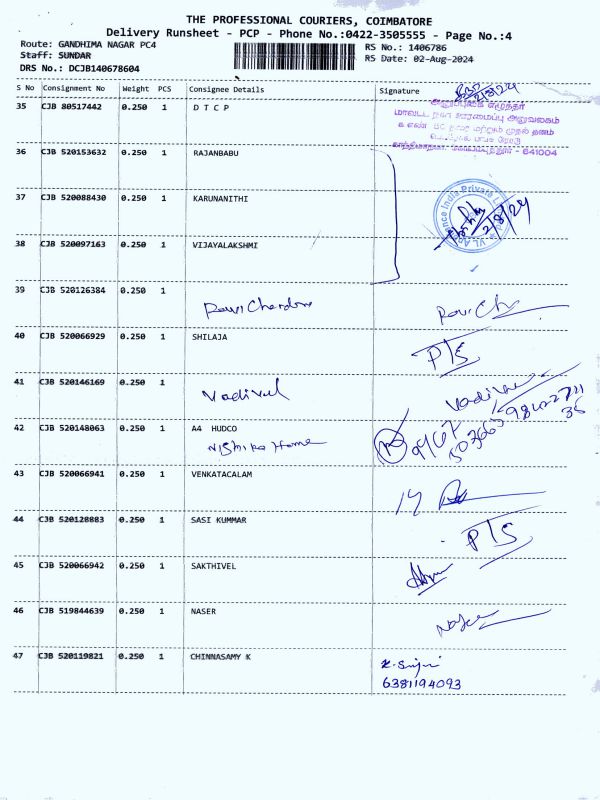 THE PROFESSIONAL COURIERS, COIMBATORE
Delivery Runsheet - PCP - Phone No.:0422-3505555 - Page No.:4
Route: GANDHIMA NAGAR PC4
RS No.: 1406786
Staff: SUNDAR
RS Date: 02-Aug-2024
DRS No.: DCJB140678604
S No Consignment No Weight PCS Consignee Details Signature
35 CJB 80517442 0.250 1 D T C P
2/8/24
- 641004
36 CJB 520153632 0.250 1 RAJANBABU
37 CJB 520088430 0.250 1 KARUNANITHI
India Private
2/8/24
38 CJB 520097163 0.250 1 VIJAYALAKSHMI
39 CJB 520126384 0.250 1
Ravi Chandran Ravi Ch
40 CJB 520066929 0.250 1 SHILAJA
P/S
41 CJB 520146169 0.250 1
Vadivel
42 CJB 520148063 0.250 1 A4 HUDCO
Nishika Home
43 CJB 520066941 0.250 1 VENKATACALAM
44 CJB 520128883 0.250 1 SASI KUMMAR
P/S
45 CJB 520066942 0.250 1 SAKTHIVEL
46 CJB 519844639 0.250 1 NASER
Naser
47 CJB 520119821 0.250 1 CHINNASAMY K
6381194093